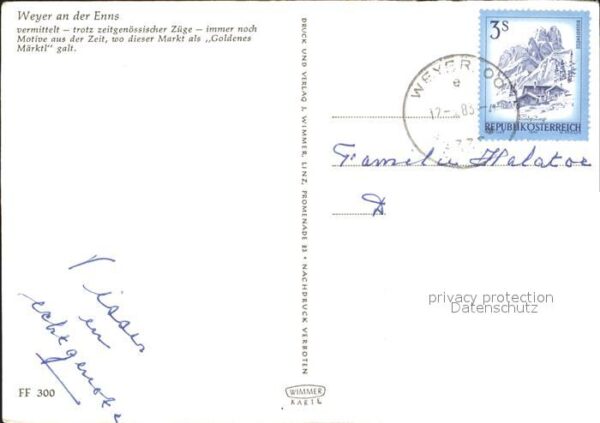 Weyer an der Enns
vermittelt — trotz zeitgenössischer Züge — immer noch
Motive aus der Zeit, wo dieser Markt als „Goldenes
Märktl" galt.
DRUCK UND VERLAG J. WIMMER, LINZ, PROMENADE 23 • NACHDRUCK VERBOTEN
3S
REPUBLIK ÖSTERREICH
WEYER, OÖ
e
Familie
D
privacy protection
Datenschutz
en
FF 300
WIMMER
KARTE